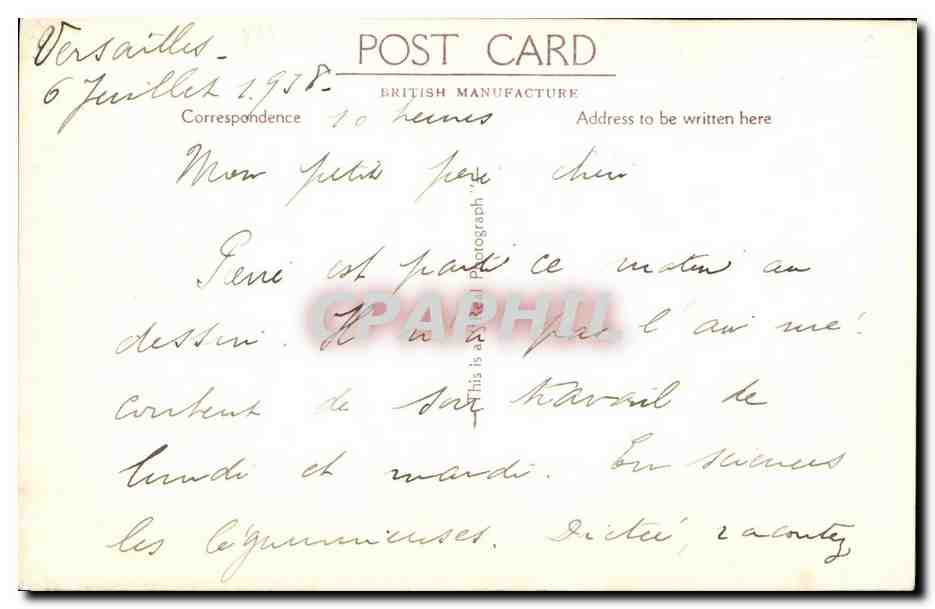 Versailles -
POST CARD
6 Juillet 1938 -
BRITISH MANUFACTURE
Correspondence 10 heures Address to be written here
Mon petit père chéri
Pierre est parti ce matin au
dessin. Il n'a pas l'air mé-
content de son travail de
lundi et mardi. En sciences
les légumineuses. Dictée, racontez
This is a "Real Photograph"
CPAPHIL